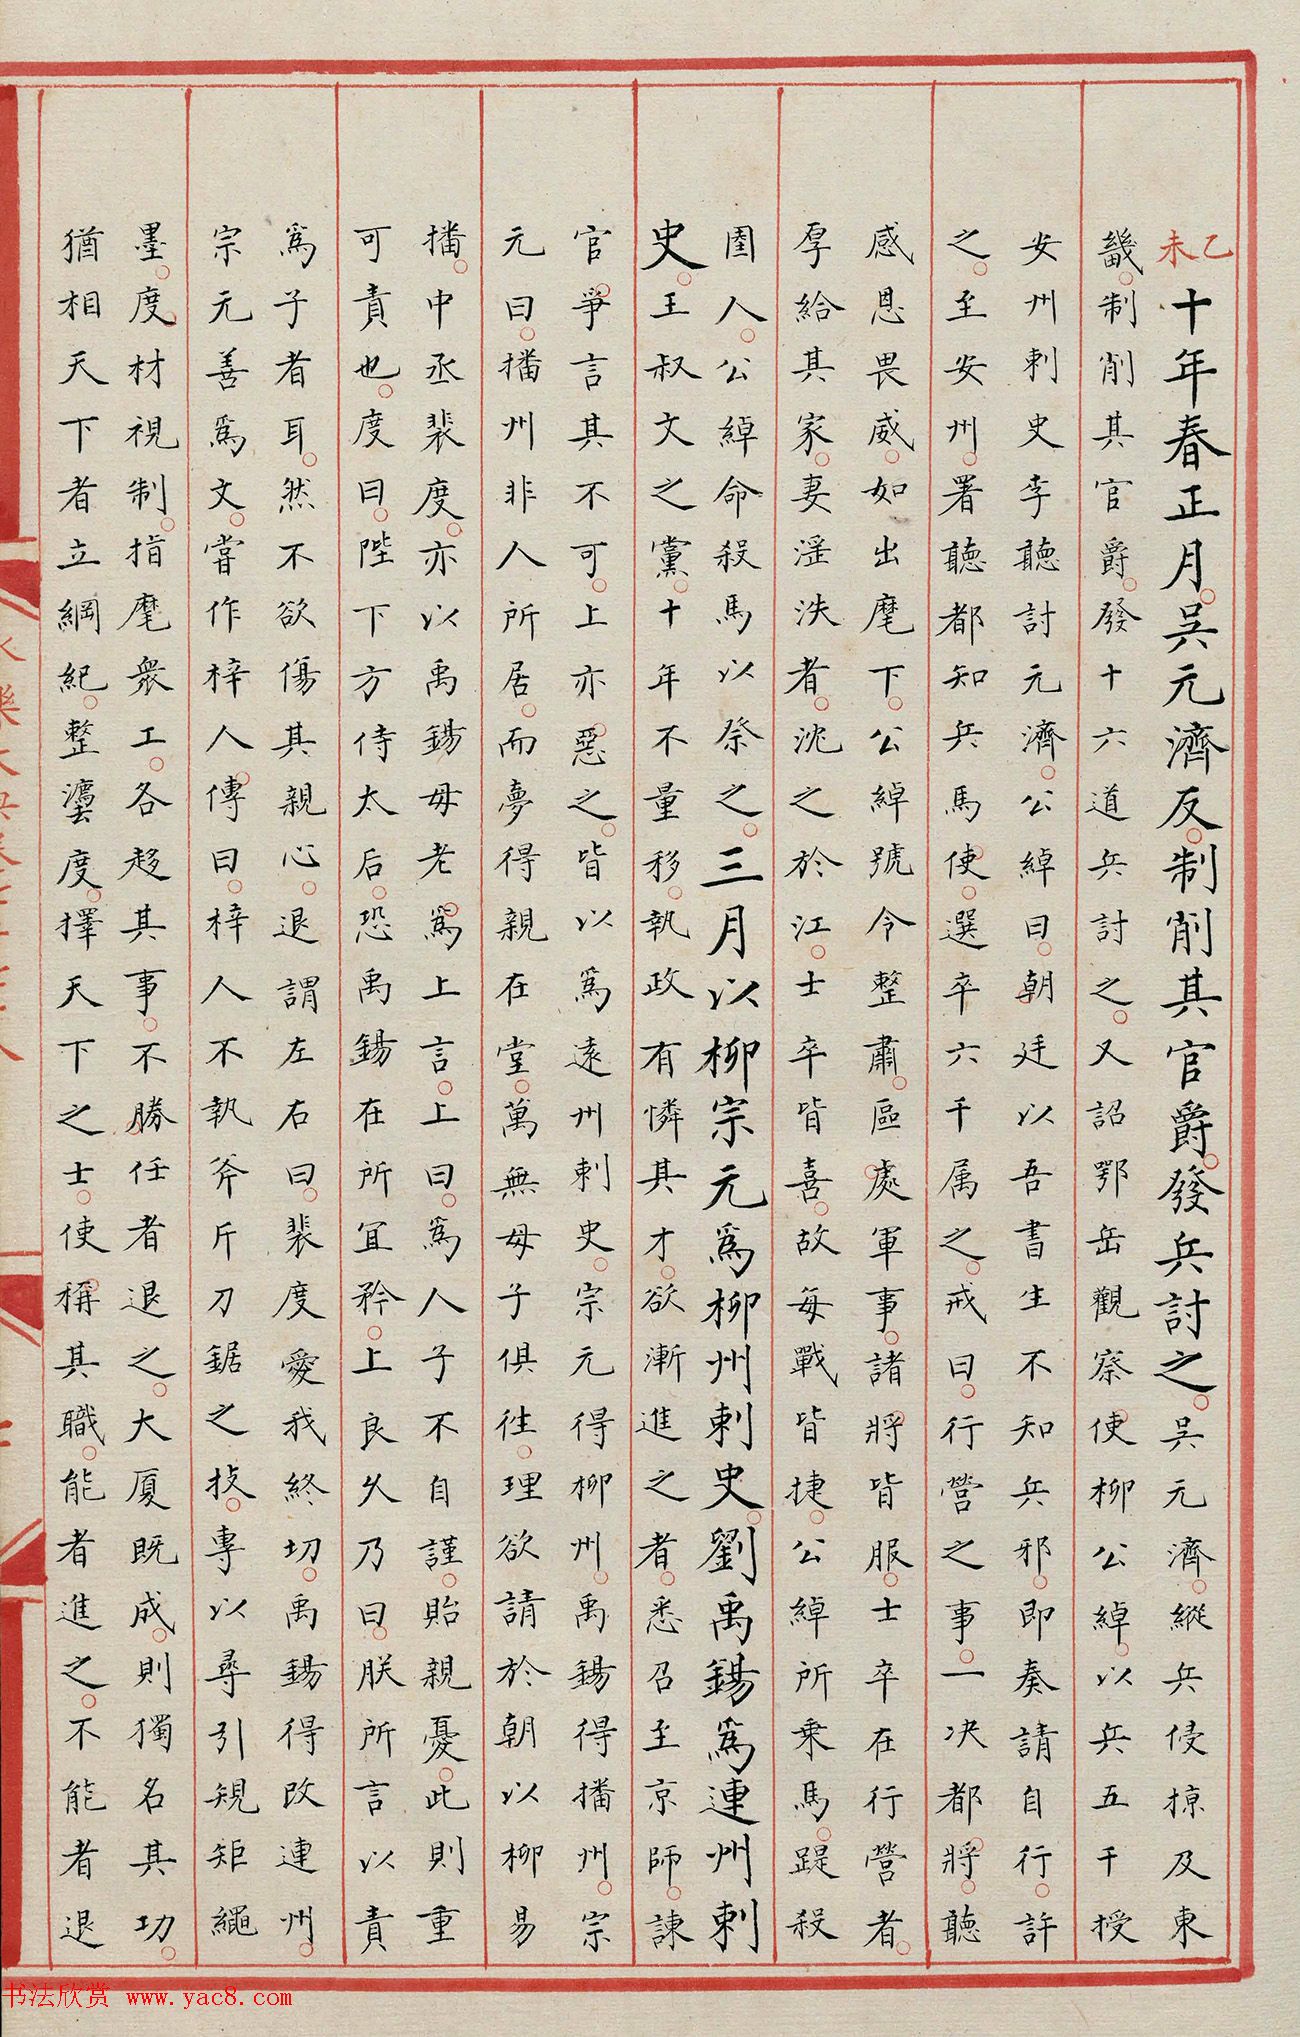 乙未
十年春正月。吳元濟反。制削其官爵。發兵討之。吳元濟。縱兵侵掠及東
畿。制削其官爵。發十六道兵討之。又詔鄂岳觀察使柳公綽。以兵五千授
安州刺史李聽討元濟。公綽曰。朝廷以吾書生不知兵邪。即奏請自行。許
之。至安州。署聽都知兵馬使。選卒六千属之。戒曰。行營之事。一决都將。聽
感恩畏威。如出麾下。公綽號令整肅。區處軍事。諸將皆服。士卒在行營者。
厚給其家。妻淫泆者。沈之於江。士卒皆喜。故每戰皆捷。公綽所乗馬。踶殺
圉人。公綽命殺馬以祭之。三月以柳宗元爲柳州刺史。劉禹錫爲連州刺
史。王叔文之黨。十年不量移。執政有憐其才。欲漸進之者。悉召至京師。諫
官。爭言其不可。上亦惡之。皆以爲遠州刺史。宗元得柳州。禹錫得播州。宗
元曰。播州非人所居。而夢得親在堂。萬無母子俱徃。理欲請於朝以柳易
播。中丞裴度。亦以禹錫母老。爲上言。上曰。爲人子不自謹。貽親憂。此則重
可責也。度曰。陛下方侍太后。恐禹錫在所宜矜。上良乆乃曰。朕所言以責
爲子者耳。然不欲傷其親心。退謂左右曰。裴度愛我終切。禹錫得改連州。
宗元善爲文。嘗作梓人傳曰。梓人不執斧斤刀鋸之技。專以尋引規矩繩
墨。度材視制。指麾衆工。各趍其事。不勝任者退之。大厦既成。則獨名其功。
猶相天下者立綱紀。整灋度。擇天下之士。使稱其職。能者進之。不能者退
书法欣赏 www.yac8.com